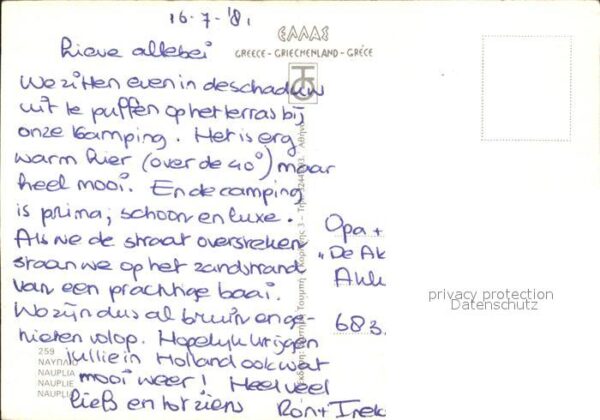 16-7-'81
ΕΛΛΑΣ
GREECE - GRIECHENLAND - GRÈCE
Lieve allebei
We zitten even in de schaduw
uit te puffen op het terras bij
onze kamping. Het is erg
warm hier (over de 40°) maar
heel mooi. En de camping
is prima; schoon en luxe.
Als we de straat oversteken
staan we op het zandstrand
van een prachtige baai.
We zijn dus al bruin en ge-
nieten volop. Hopelijk krijgen
jullie in Holland ook wat
mooi weer! Heel veel
liefs en tot ziens Ron + Inek
259
ΝΑΥΠΛΙΟ
NAUPLIA
NAUPLIE
NAUPLI
Opa +
"De Ak
683
privacy protection
Datenschutz